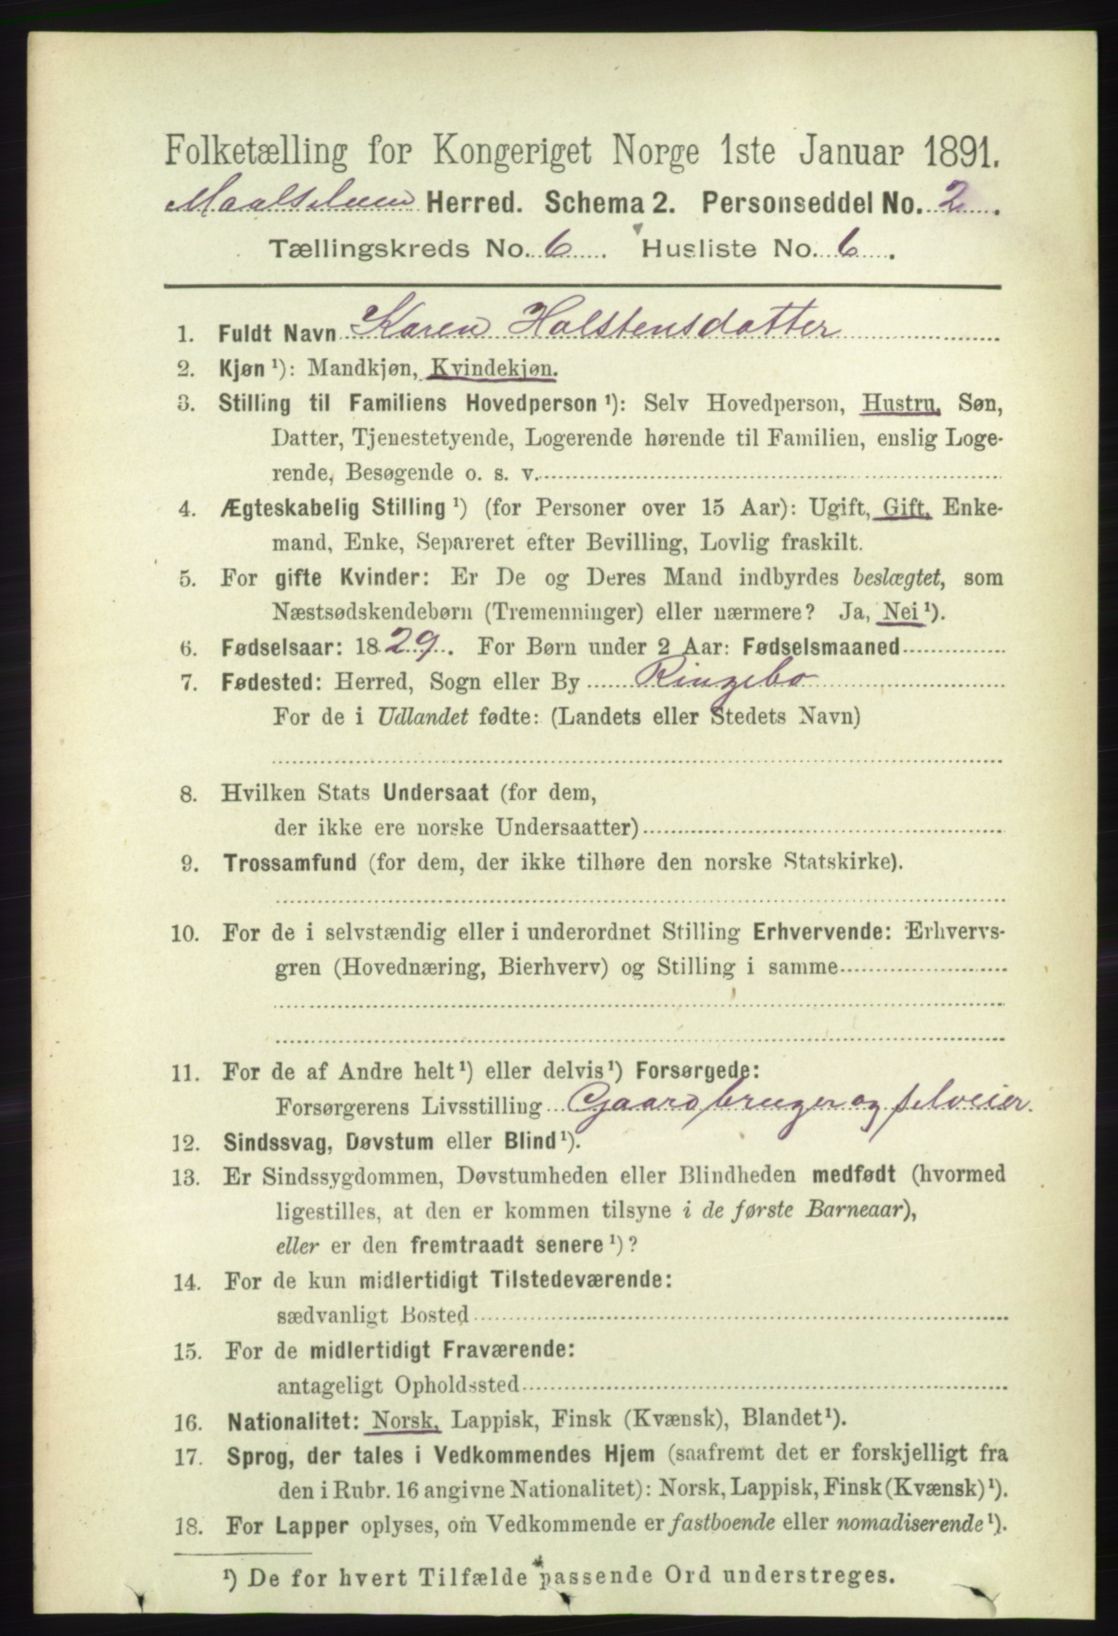 Folketælling for Kongeriget Norge 1ste Januar 1891.
Maalselven Herred. Schema 2. Personseddel No. 2.
Tællingskreds No. 6. Husliste No. 6.
1. Fuldt Navn Karen Halstensdatter
2. Kjøn¹): Mandkjøn, Kvindekjøn.
3. Stilling til Familiens Hovedperson¹): Selv Hovedperson, Hustru, Søn,
Datter, Tjenestetyende, Logerende hørende til Familien, enslig Loge-
rende, Besøgende o. s. v.
4. Ægteskabelig Stilling¹) (for Personer over 15 Aar): Ugift, Gift, Enke-
mand, Enke, Separeret efter Bevilling, Lovlig fraskilt.
5. For gifte Kvinder: Er De og Deres Mand indbyrdes beslægtet, som
Næstsødskendebørn (Tremenninger) eller nærmere? Ja, Nei¹).
6. Fødselsaar: 1829. For Børn under 2 Aar: Fødselsmaaned
7. Fødested: Herred, Sogn eller By Ringebo
For de i Udlandet fødte: (Landets eller Stedets Navn)
8. Hvilken Stats Undersaat (for dem,
der ikke ere norske Undersaatter)
9. Trossamfund (for dem, der ikke tilhøre den norske Statskirke).
10. For de i selvstændig eller i underordnet Stilling Erhvervende: Erhvervs-
gren (Hovednæring, Bierhverv) og Stilling i samme
11. For de af Andre helt¹) eller delvis¹) Forsørgede:
Forsørgerens Livsstilling Gaardbruger og selveier.
12. Sindssvag, Døvstum eller Blind¹).
13. Er Sindssygdommen, Døvstumheden eller Blindheden medfødt (hvormed
ligestilles, at den er kommen tilsyne i de første Barneaar),
eller er den fremtraadt senere¹)?
14. For de kun midlertidigt Tilstedeværende:
sædvanligt Bosted
15. For de midlertidigt Fraværende:
antageligt Opholdssted
16. Nationalitet: Norsk, Lappisk, Finsk (Kvænsk), Blandet¹).
17. Sprog, der tales i Vedkommendes Hjem (saafremt det er forskjelligt fra
den i Rubr. 16 angivne Nationalitet): Norsk, Lappisk, Finsk (Kvænsk)¹).
18. For Lapper oplyses, om Vedkommende er fastboende eller nomadiserende¹).
¹) De for hvert Tilfælde passende Ord understreges.